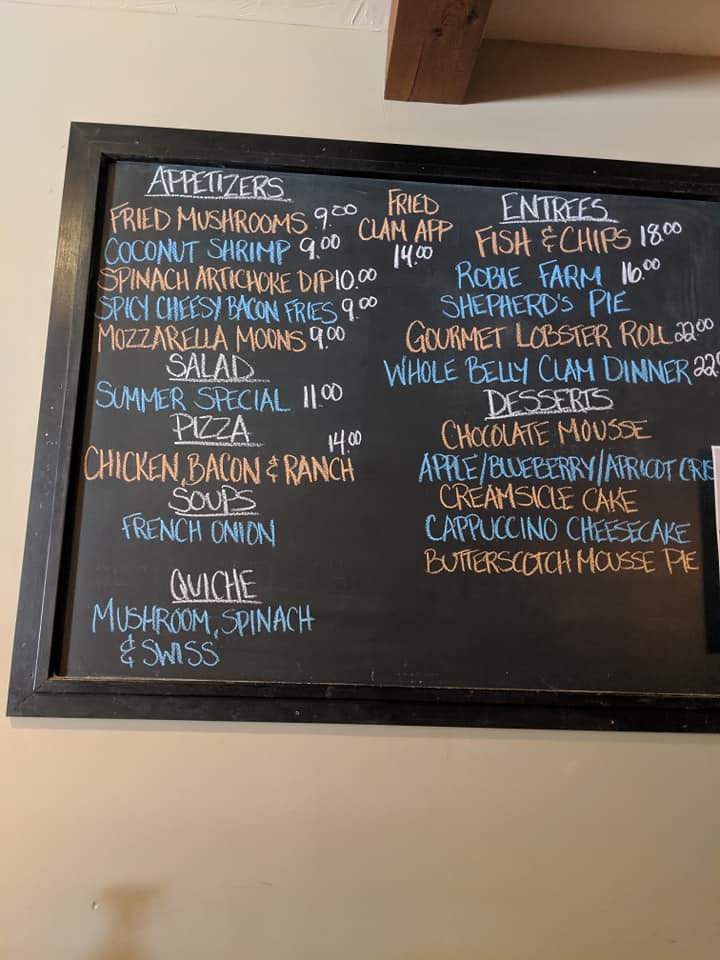 APPETIZERS
FRIED MUSHROOMS 9.00
COCONUT SHRIMP 9.00
SPINACH ARTICHOKE DIP 10.00
SPICY CHEESY BACON FRIES 9.00
MOZZARELLA MOONS 9.00
FRIED
CLAM APP
14.00
SALAD
SUMMER SPECIAL 11.00
PIZZA
14.00
CHICKEN, BACON & RANCH
SOUPS
FRENCH ONION
QUICHE
MUSHROOM, SPINACH
& SWISS
ENTREES
FISH & CHIPS 18.00
ROBIE FARM 16.00
SHEPHERD'S PIE
GOURMET LOBSTER ROLL 22.00
WHOLE BELLY CLAM DINNER 22.0
DESSERTS
CHOCOLATE MOUSSE
APPLE/BLUEBERRY/APRICOT CRIS
CREAMSICLE CAKE
CAPPUCCINO CHEESECAKE
BUTTERSCOTCH MOUSSE PIE